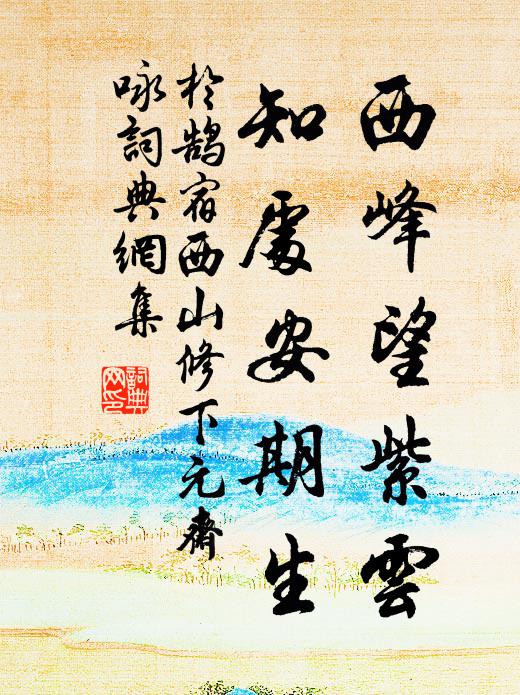 西峰望紫雲
知處安期生
於鵠宿西山修下元齋
咏詞典網集
詞典網印